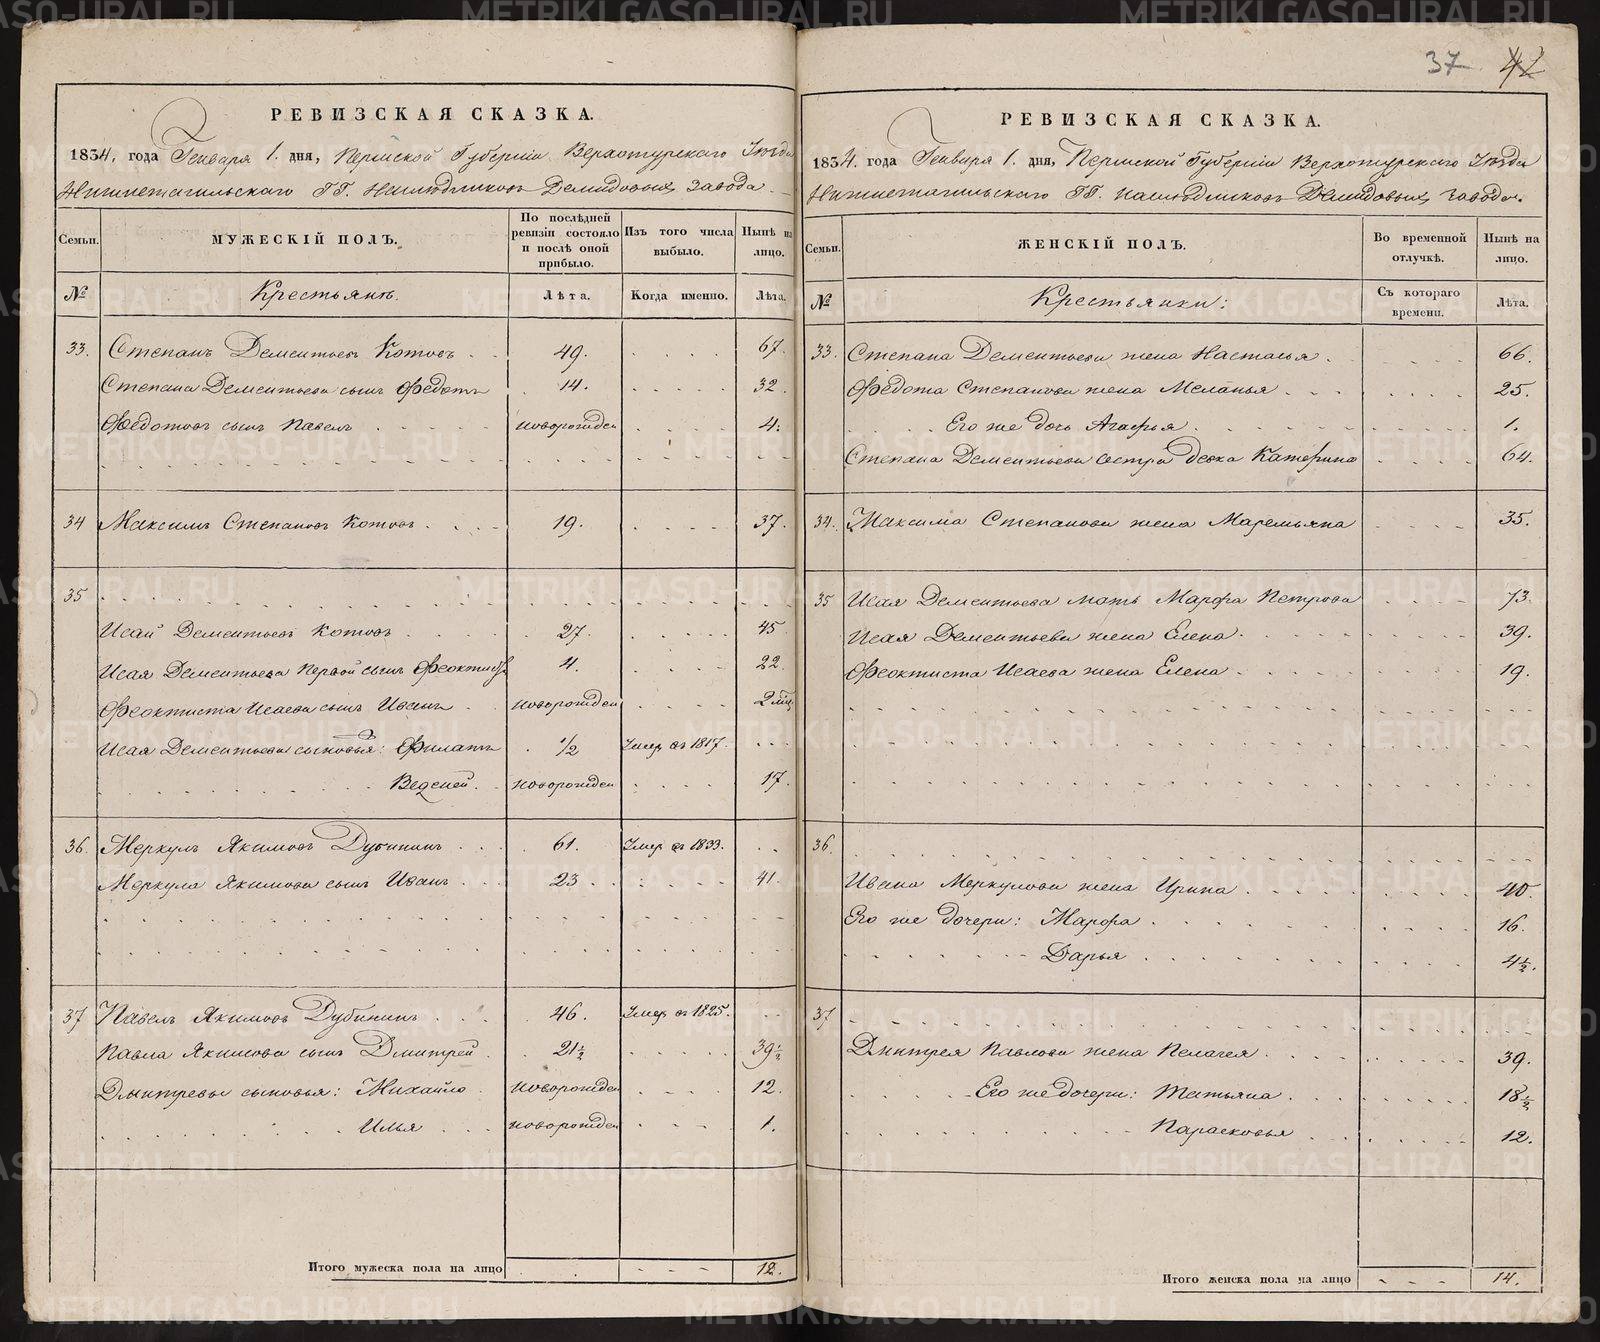 37 42
РЕВИЗСКАЯ СКАЗКА.
1834. года Генваря 1. дня, Пермской Губерніи Верхотурскаго Уѣзда
Нижнетагильскаго ГГ. Наслѣдниковъ Демидовыхъ завода.
Семьи.
МУЖЕСКІЙ ПОЛЪ.
По послѣдней ревизіи состояло и послѣ оной прибыло.
Изъ того числа выбыло.
Нынѣ на лицо.
№
Крестьянъ.
Лѣта.
Когда именно.
Лѣта.
33. Степанъ Дементьевъ Котовъ 49. 67.
Степана Дементьева сынъ Федотъ 14. 32
Федотовъ сынъ Павелъ новорожден 4.
34 Максимъ Степановъ Котовъ 19. 37.
35
Исай Дементьевъ Котовъ 27. 45
Исая Дементьева первой сынъ Феоктистъ 4. 22
Феоктиста Исаева сынъ Иванъ новорожден 2 мц
Исая Дементьева сыновья: Филатъ 1/2 Умер въ 1817.
Веденей новорожден 17.
36. Меркулъ Якимовъ Дубининъ 61. Умер въ 1833.
Меркула Якимова сынъ Иванъ 23 41.
37 Павелъ Якимовъ Дубининъ 46. Умер въ 1825.
Павла Якимова сынъ Дмитрей 21 1/2 39 1/2
Дмитревы сыновья: Михайло новорожден 12.
Илья новорожден 1.
Итого мужеска пола на лицо 12.
РЕВИЗСКАЯ СКАЗКА.
1834. года Генваря 1. дня, Пермской Губерніи Верхотурскаго Уѣзда
Нижнетагильскаго ГГ. Наслѣдниковъ Демидовыхъ завода.
Семьи.
ЖЕНСКІЙ ПОЛЪ.
Во временной отлучкѣ.
Нынѣ на лицо.
№
Крестьянки:
Съ котораго времени.
Лѣта.
33. Степана Дементьева жена Настасья 66.
Федота Степанова жена Меланья 25.
Его же дочь Агафья 1.
Степана Дементьева сестра девка Катерина 64.
34. Максима Степанова жена Маремьяна 35.
35 Исая Дементьева мать Марфа Петрова 73.
Исая Дементьева жена Елена 39.
Феоктиста Исаева жена Елена 19.
36.
Ивана Меркулова жена Ирина 40.
Его же дочери: Марфа 16.
Дарья 4 1/2.
37
Дмитрея Павлова жена Пелагея 39.
Его же дочери: Татьяна 18 1/2
Парасковья 12.
Итого женска пола на лицо 14.
METRIKI.GASO-URAL.RU